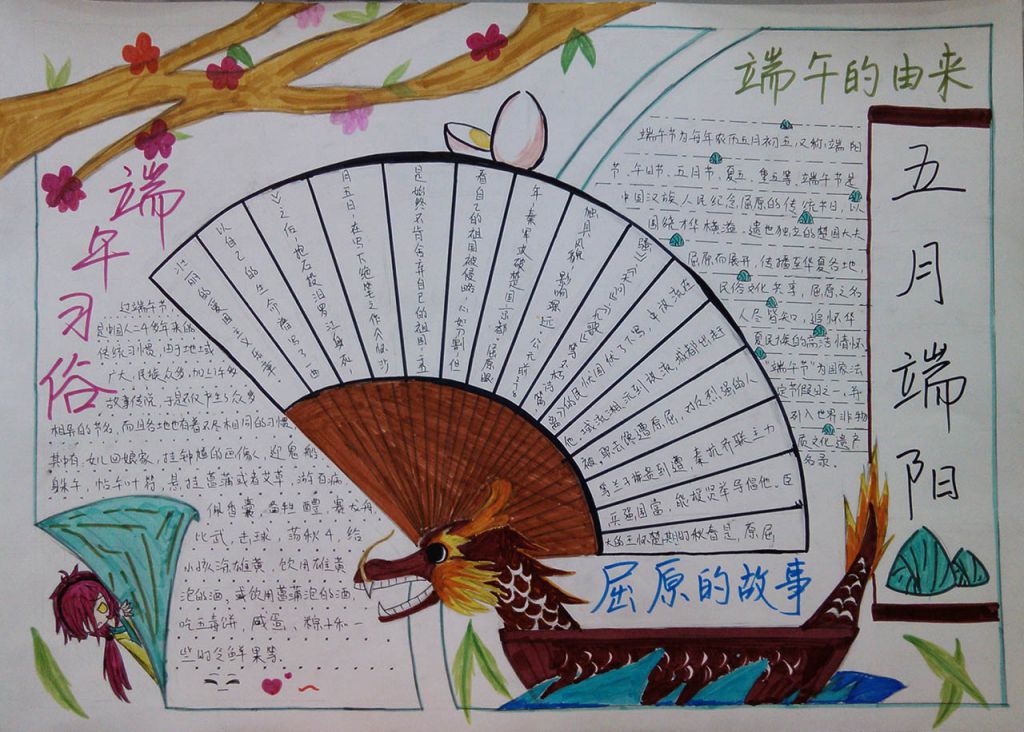 端午的由来
端午节为每年农历五月初五,又称端阳
节、午日节、五月节、夏五、重五等。端午节是
中国汉族人民纪念屈原的传统节日,以
围绕才华横溢、遗世独立的楚国大夫
屈原而展开,传播至华夏各地,
民俗文化共享,屈原之名
人尽皆知,追怀华
夏民族的高洁情怀
"端午节"为国家法
定节假日之一,并
列入世界非物
质文化遗产
名录。
五月端阳
端午习俗
过端午节,
是中国人二千多年来的
传统习惯,由于地域
广大,民族众多,加上许多
故事传说,于是不仅产生了众多
相异的节名,而且各地也有着不尽相同的习惯
其中有:女儿回娘家,挂钟馗的画像,迎鬼船
躲午,帖午叶符,悬挂菖蒲或者艾草,游百病,
佩香囊,备牲醴,赛龙舟
比武,击球,荡秋千,给
小孩涂雄黄,饮用雄黄
泡的酒,或饮用菖蒲泡的酒,
吃五毒饼,咸蛋、粽子和一
些时令鲜果等。
屈原的故事
屈原,是春秋时期楚怀王的大
臣。他倡导举贤授能,富国强兵
力主联齐抗秦,遭到贵族子兰等
人的强烈反对,屈原遭馋去职,被
赶出都城,流放到沅、湘流域。他
在流放中,写下了忧国忧民的《离
骚》《天问》《九歌》等
影响深远 公元前
年,秦军攻破楚国京都。屈原眼
看自己的祖国被侵略,心如刀割,但
是始终不忍舍弃自己的祖国,于
月五日,在写下绝笔之作《怀沙
》之后,抱石投汨罗江身死,
以自己的生命谱写了一曲
壮丽的爱国主义乐章